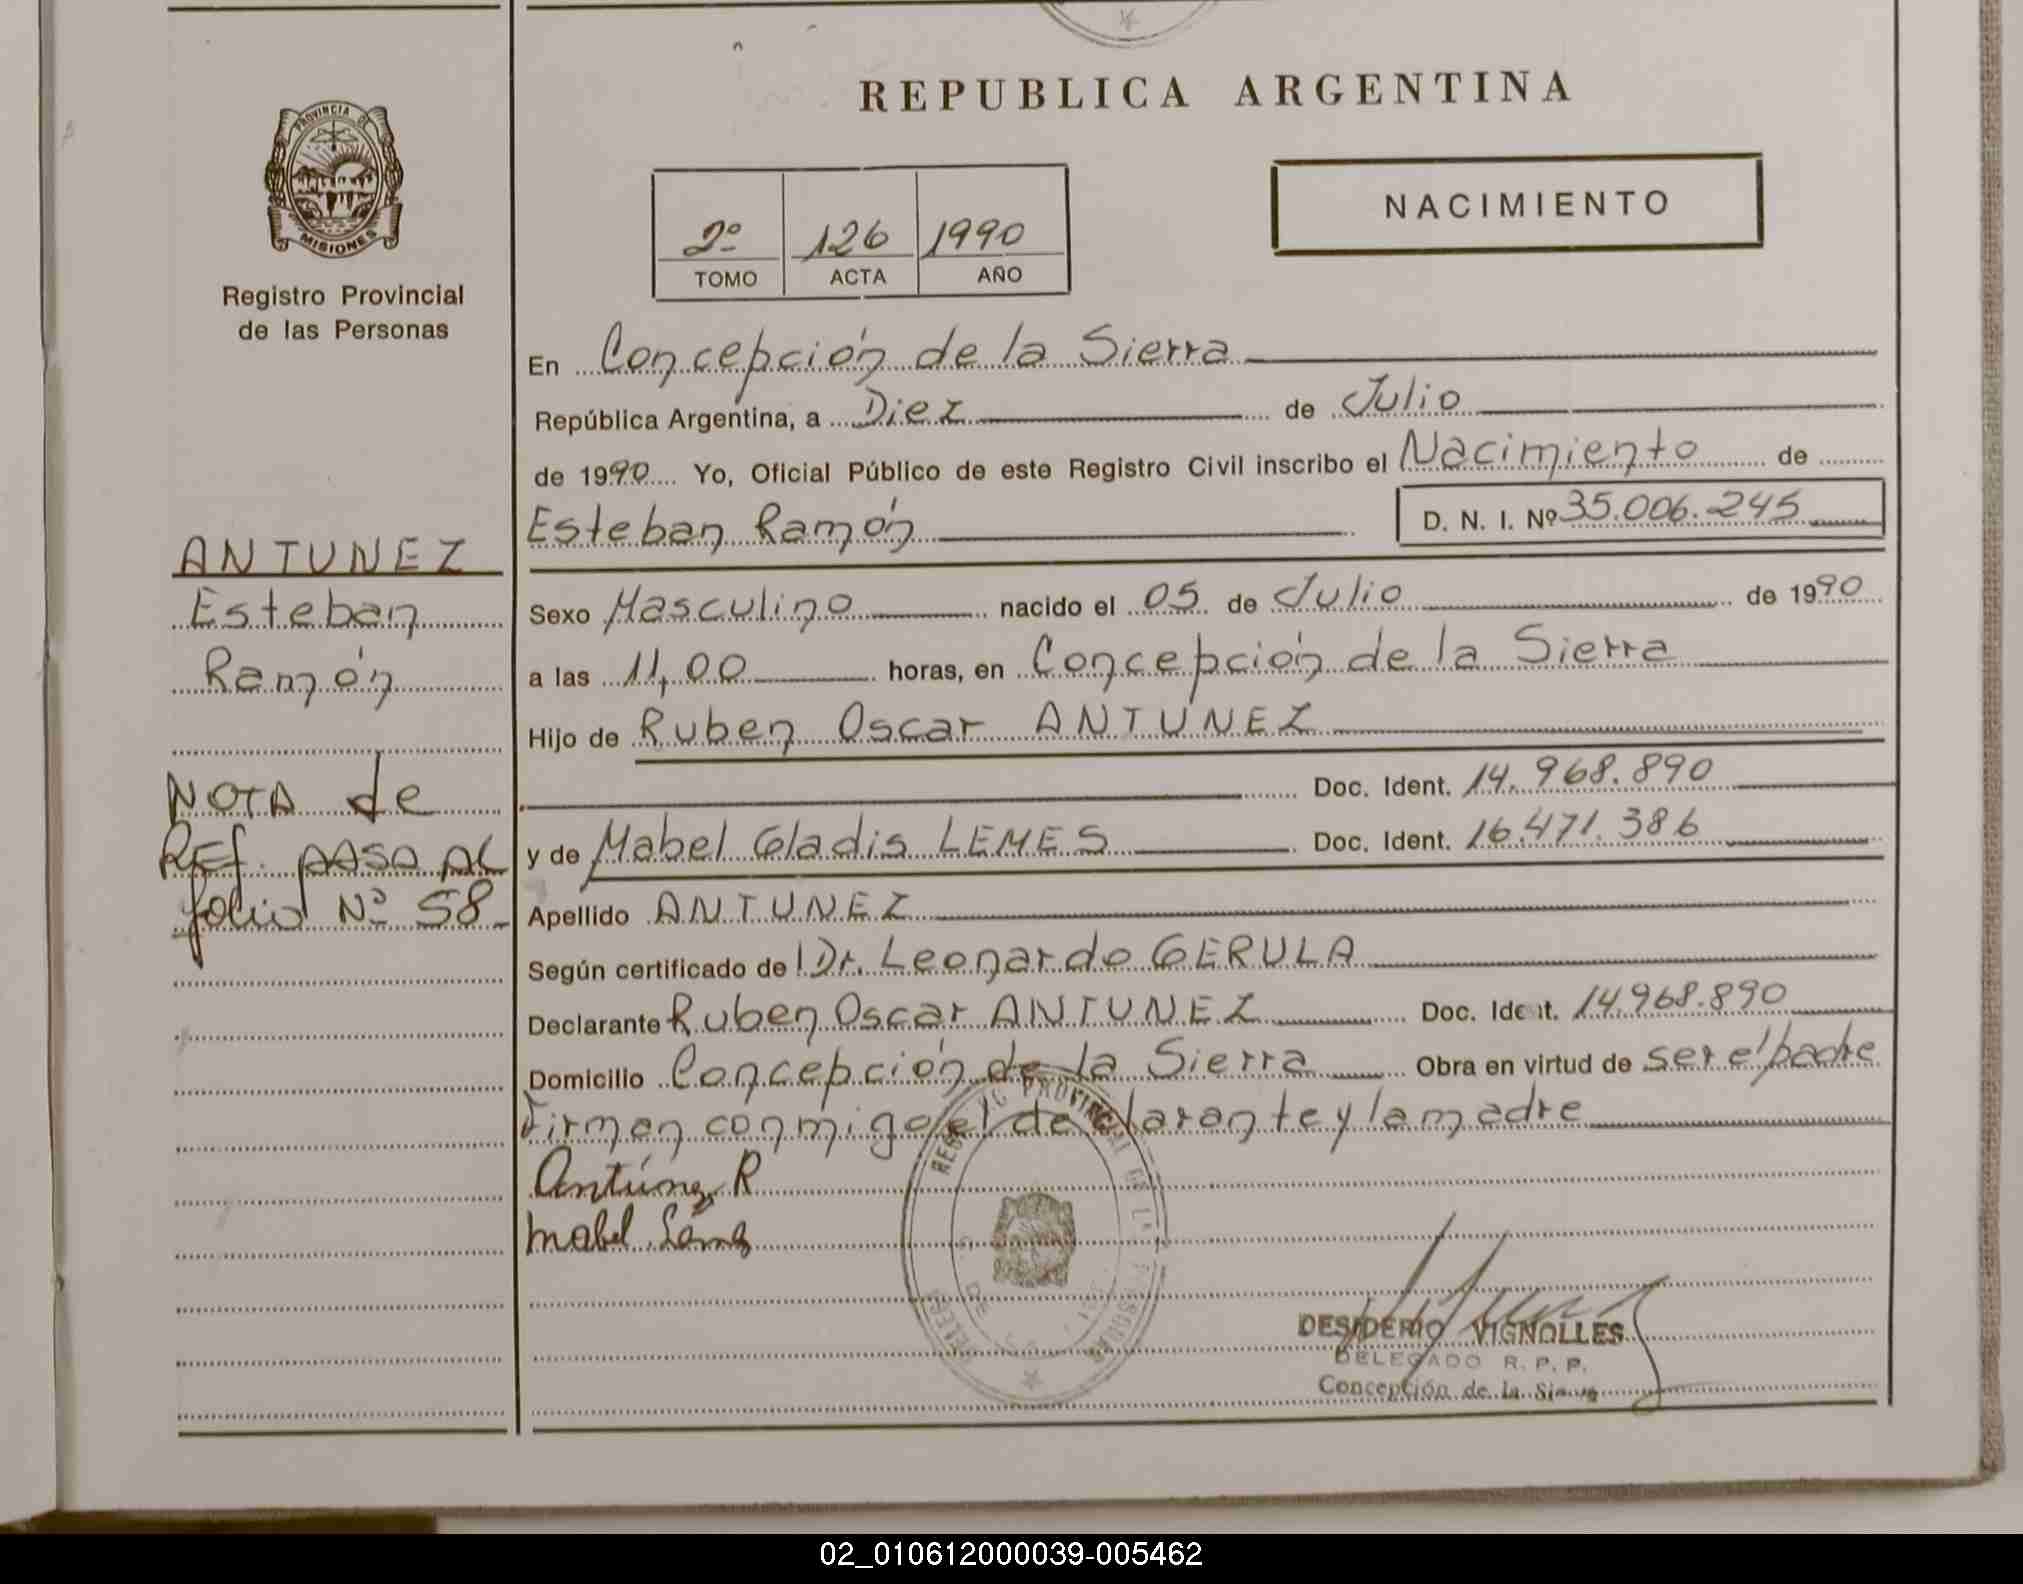 REPUBLICA ARGENTINA
PROVINCIA DE
MISIONES
Registro Provincial
de las Personas
2º 126 1990
TOMO ACTA AÑO
NACIMIENTO
En Concepción de la Sierra
República Argentina, a Diez de Julio
de 1990 Yo, Oficial Público de este Registro Civil inscribo el Nacimiento de
Esteban Ramón D. N. I. Nº 35.006.245
ANTUNEZ
Esteban
Ramón
NOTA de
REf. PASA AL
folio Nº 58
Sexo Masculino nacido el 05 de Julio de 1990
a las 11,00 horas, en Concepción de la Sierra
Hijo de Ruben Oscar ANTUNEZ
Doc. Ident. 14.968.890
y de Mabel Gladis LEMES Doc. Ident. 16.471.386
Apellido ANTUNEZ
Según certificado de Dr. Leonardo GERULA
Declarante Ruben Oscar ANTUNEZ Doc. Ident. 14.968.890
Domicilio Concepción de la Sierra Obra en virtud de ser el padre
Firman conmigo el declarante y la madre
Antúnez R
Mabel Lemes
DESIDERIO VIGNOLLES
DELEGADO R. P. P.
Concepción de la Sierra
02_010612000039-005462